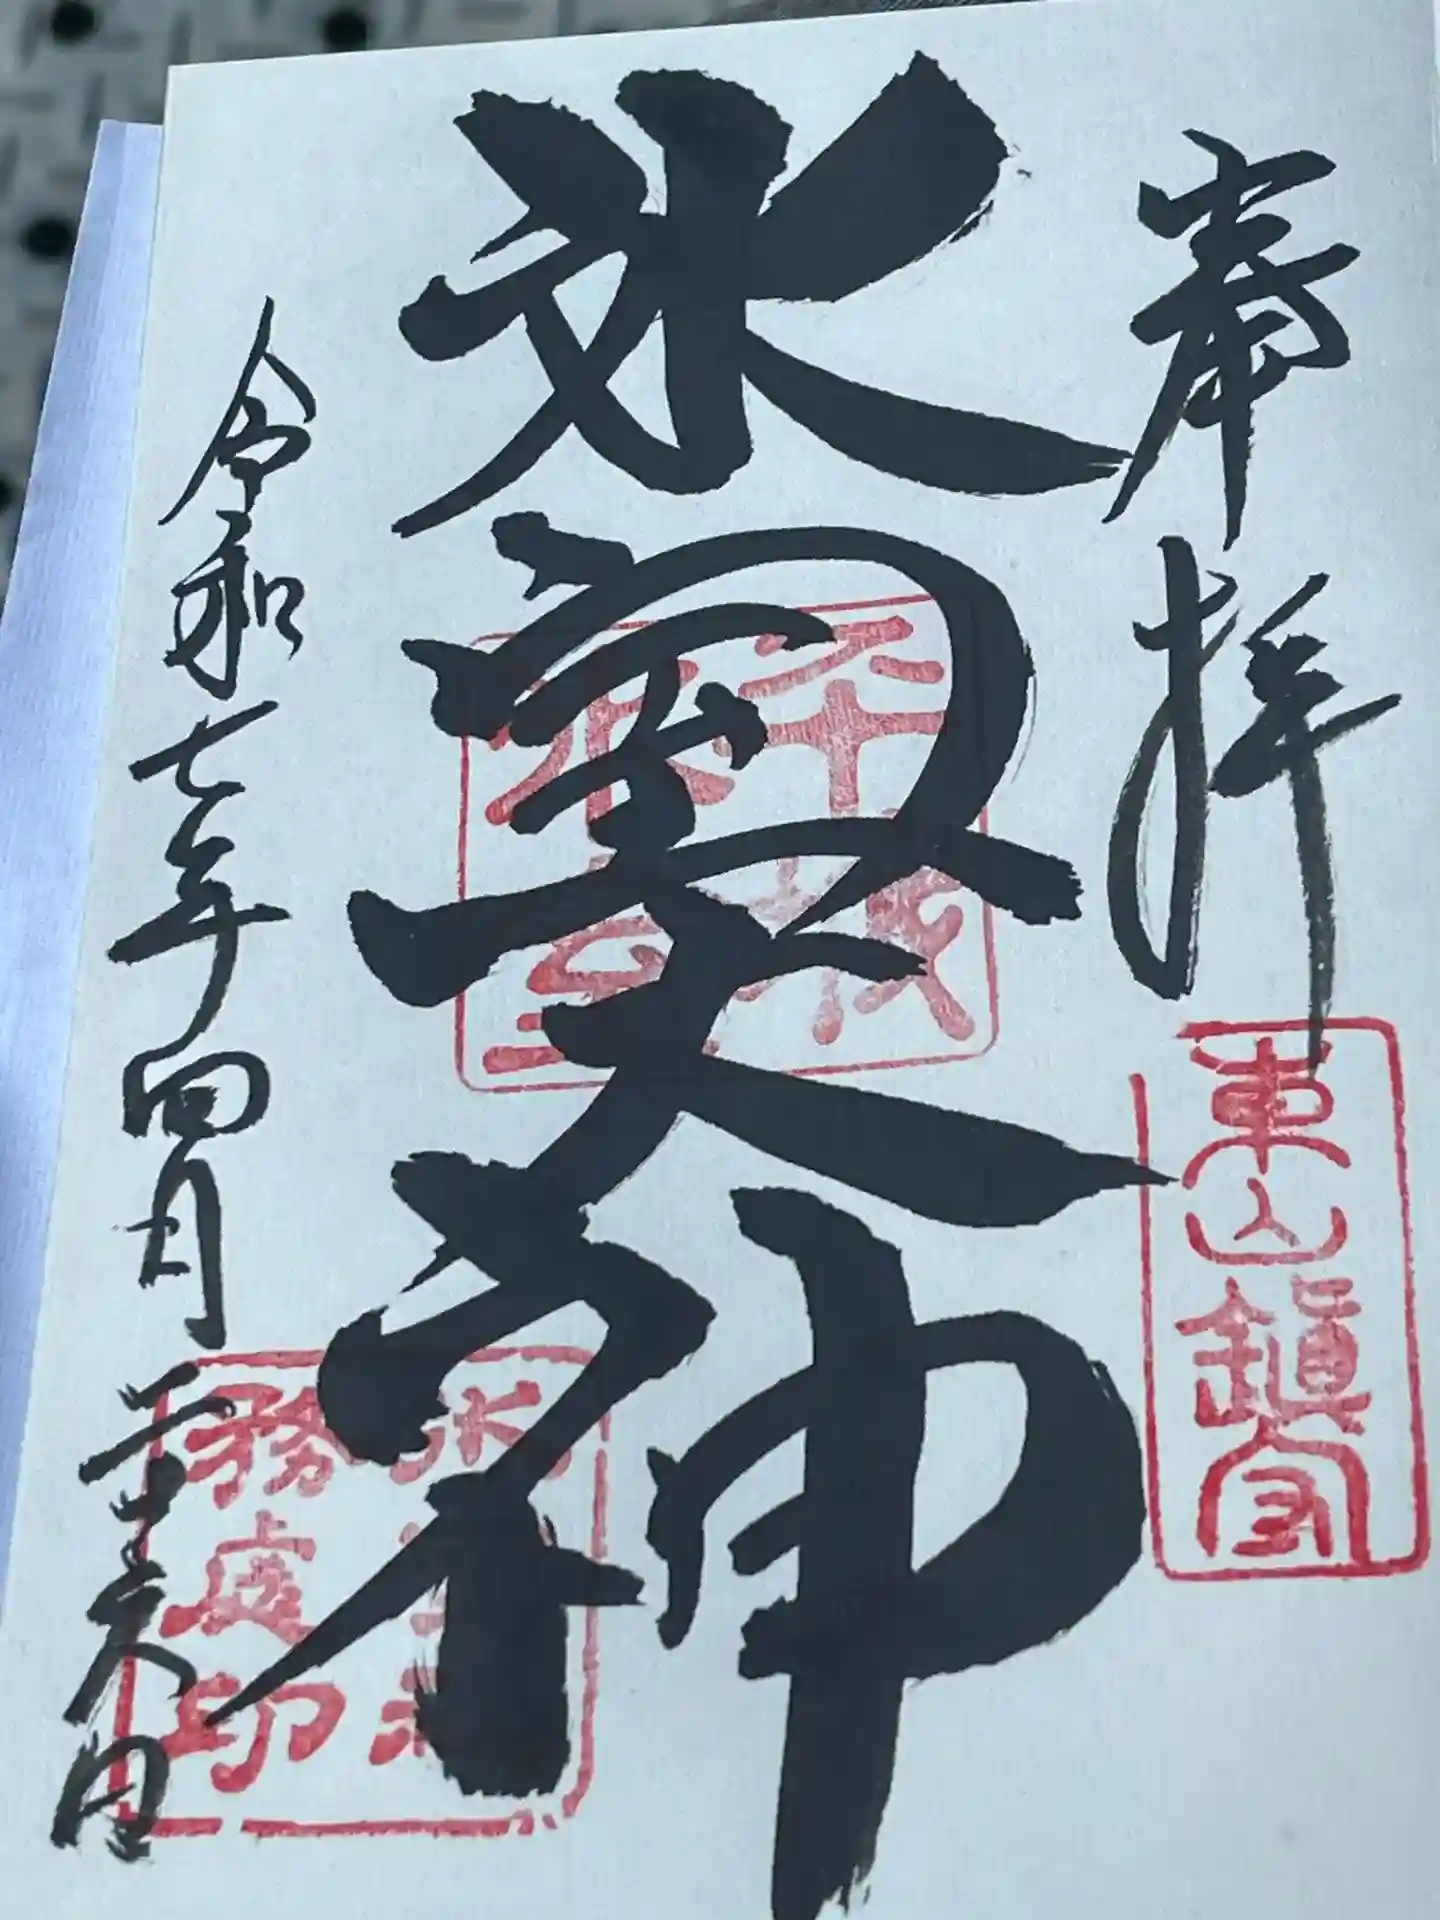 奉拝
東山鎮守
氷室大神
平城
氷室
令和七年四月二十六日
務處印